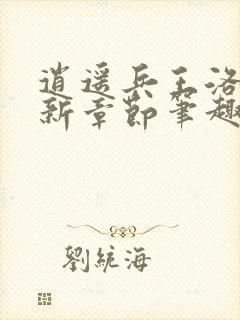 逍遥兵王洛
新章節筆趣
劉統海